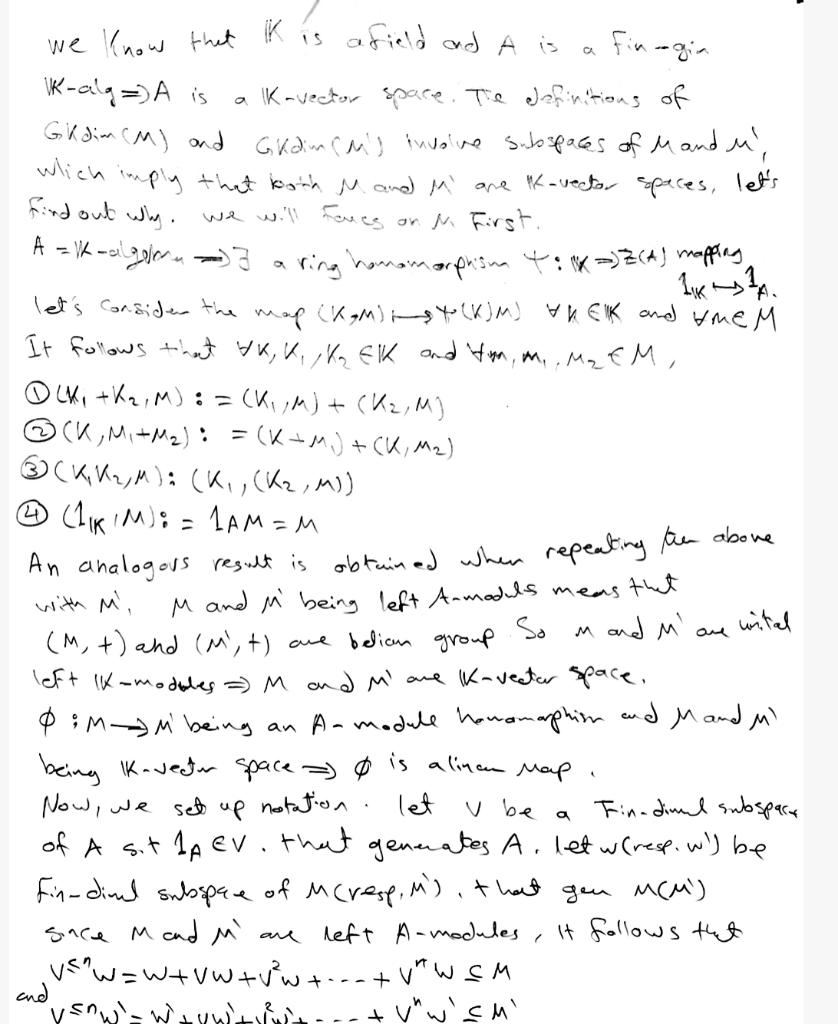 we Know that 𝕂 is a field and A is a fin-gin
𝕂-alg ⇒ A is a 𝕂-vector space. The definitions of
GKdim(M) and GKdim(M') involve subspaces of M and M',
which imply that both M and M' are 𝕂-vector spaces, let's
find out why. we will foucs on M First.
A = 𝕂-algebra ⇒ ∃ a ring homomorphism Ψ: 𝕂 ⇒ Z(A) mapping
1𝕂 ↦ 1A.
let's consider the map (K,M) ↦ Ψ(K)M) ∀ K ∈ 𝕂 and ∀m ∈ M
It follows that ∀K, K₁, K₂ ∈ 𝕂 and ∀m, m₁, M₂ ∈ M,
① (K₁ + K₂, M) := (K₁, M) + (K₂, M)
② (K, M₁ + M₂) := (K + M₁) + (K, M₂)
③ (K₁K₂, M): (K₁, (K₂, M))
④ (1𝕂, M) := 1AM = M
An analogous result is obtained when repeating the above
with M'. M and M' being left A-moduls means that
(M, +) and (M', +) are belian group So M and M' are unital
left 𝕂-modules ⇒ M and M' are 𝕂-vector space.
φ : M → M' being an A-module homomorphism and M and M'
being 𝕂-vector space ⇒ φ is a linear map.
Now, we set up notation. let V be a Fin-dimnl subspace
of A s.t 1A ∈ V. that generates A. let w (resp. w') be
fin-dimnl subspace of M (resp, M'), that gen M(M')
since M and M' are left A-modules, It follows that
V≤ⁿW = W + VW + V²W + ---- + VⁿW ⊆ M
and
V≤ⁿW' = W' + VW' + V²W' + ---- + VⁿW' ⊆ M'